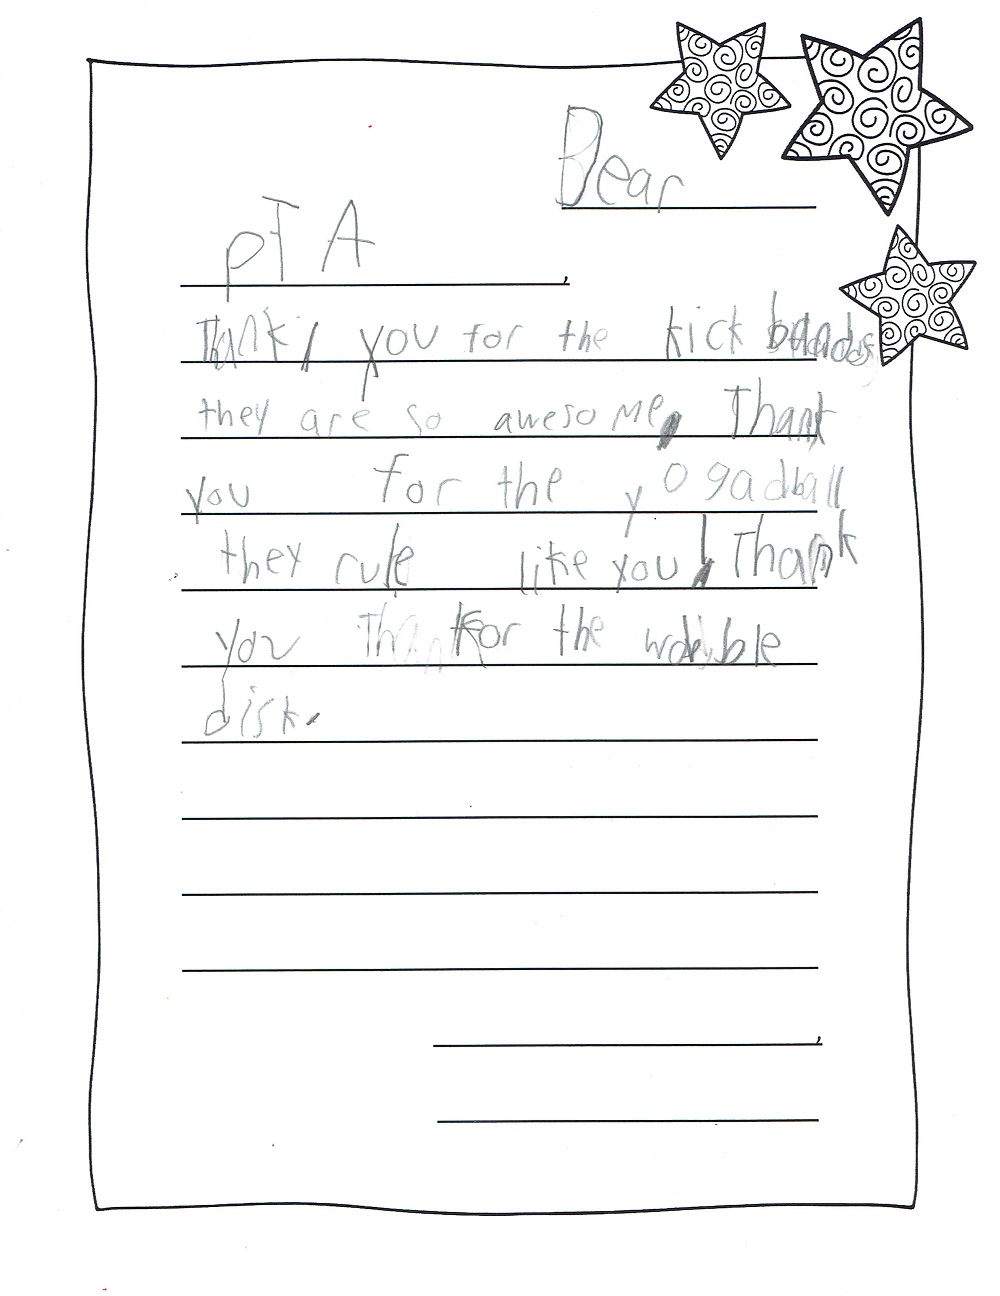 Dear
pTA,
Thank you for the kick bands
they are so awesome, Thank
you for the yogadball
they rule like you! Thank
you for the wobble
disk.